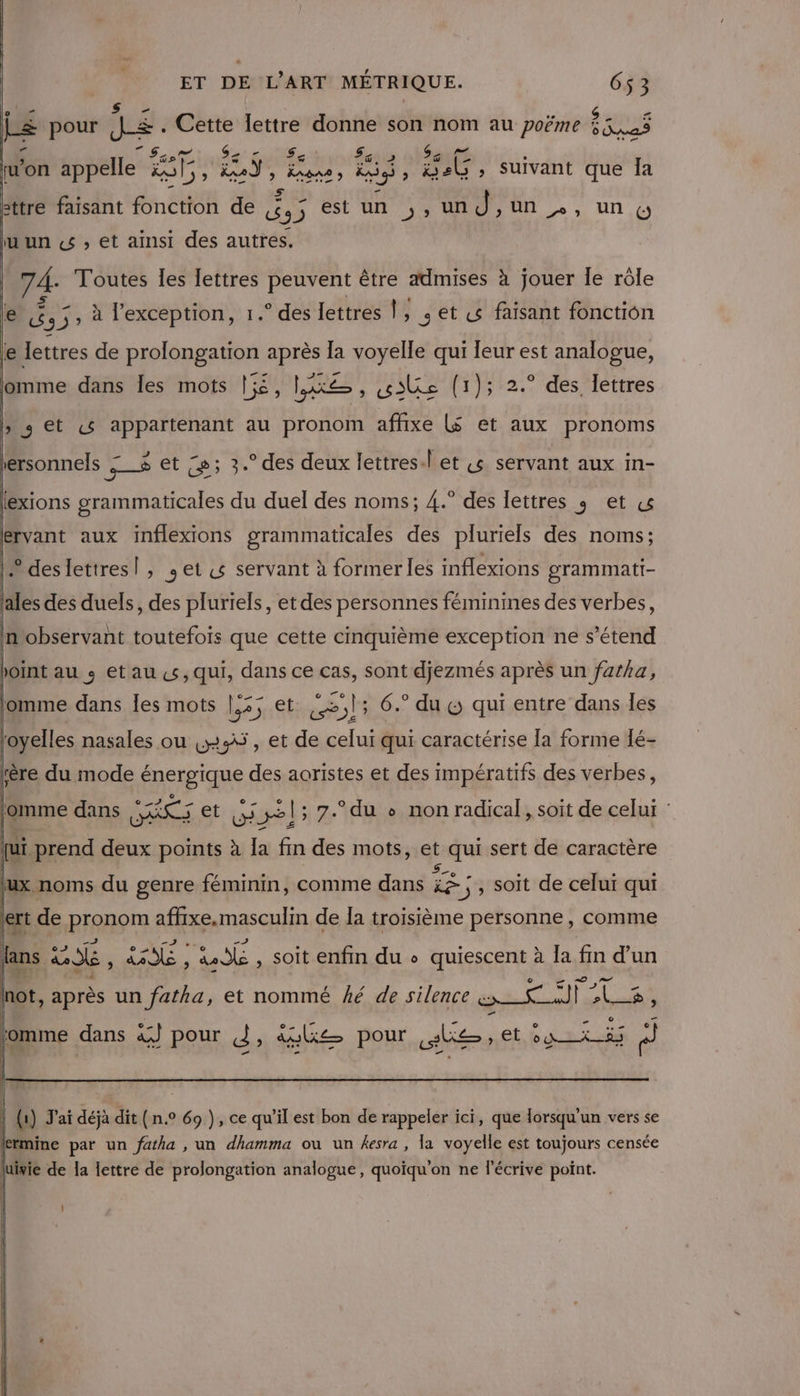 ET DE L'ART MÉTRIQUE. 653
pour . Cette lettre donne son nom au poëme قصيدة
u'on appelle رائية, لامية, ميمية, نونية, يائية, suivant que la
ettre faisant fonction de روي est un ر, un ل, un م, un ن
u un ى, et ainsi des autres.
74. Toutes les lettres peuvent être admises à jouer le rôle
e روي, à l'exception, 1.° des lettres ا, و et ى faisant fonction
e lettres de prolongation après la voyelle qui leur est analogue,
omme dans les mots (1); 2.° des lettres
و et ى appartenant au pronom affixe et aux pronoms
ersonnels et ; 3.° des deux lettres ا et ى servant aux in-
lexions grammaticales du duel des noms; 4.° des lettres و et ى
ervant aux inflexions grammaticales des pluriels des noms;
.° des lettres ا, و et ى servant à former les inflexions grammati-
ales des duels, des pluriels, et des personnes féminines des verbes,
n observant toutefois que cette cinquième exception ne s'étend
oint au و et au ى, qui, dans ce cas, sont djezmés après un fatha,
omme dans les mots et ; 6.° du ن qui entre dans les
oyelles nasales ou تنوين, et de celui qui caractérise la forme lé-
ère du mode énergique des aoristes et des impératifs des verbes,
omme dans et ; 7.° du ه non radical, soit de celui
ui prend deux points à la fin des mots, et qui sert de caractère
ux noms du genre féminin, comme dans , soit de celui qui
ert de pronom affixe masculin de la troisième personne, comme
ans غلامه, غلامه, غلامه, soit enfin du ه quiescent à la fin d'un
not, après un fatha, et nommé hé de silence هاء السكت,
omme dans pour , pour , et
(1) J'ai déjà dit (n.° 69), ce qu'il est bon de rappeler ici, que lorsqu'un vers se
ermine par un fatha, un dhamma ou un kesra, la voyelle est toujours censée
uivie de la lettre de prolongation analogue, quoiqu'on ne l'écrive point.